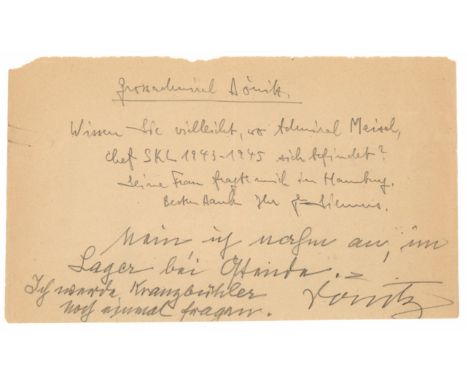 Grossadmiral Dönitz.
Wissen Sie vielleicht, wo Admiral Meisel,
Chef SKL 1943-1945 sich befindet?
Seine Frau fragt mich in Hamburg.
Besten Dank Ihr
Nein ich nahm an, im
Lager bei Ostende.
Dönitz
Ich werde Kranzbühler
noch einmal fragen.